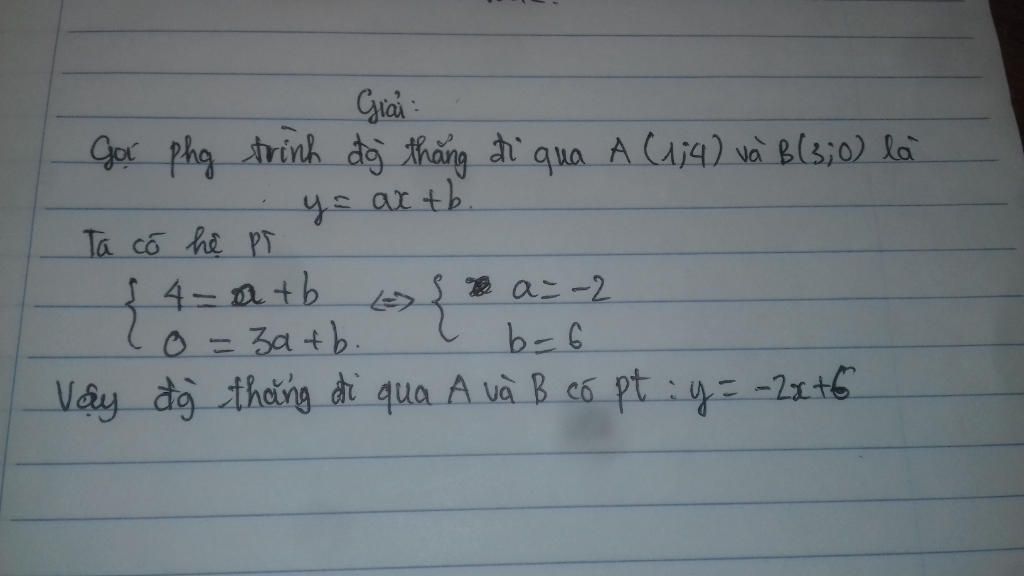 Giải:
Gọi phg trình đg̀ thẳng đi qua A (1;4) và B(3;0) là
y = ax + b.
Ta có hệ PT
{ 4 = a + b <=> { a = -2
{ 0 = 3a + b. { b = 6
Vậy đg̀ thẳng đi qua A và B có pt : y = -2x+6